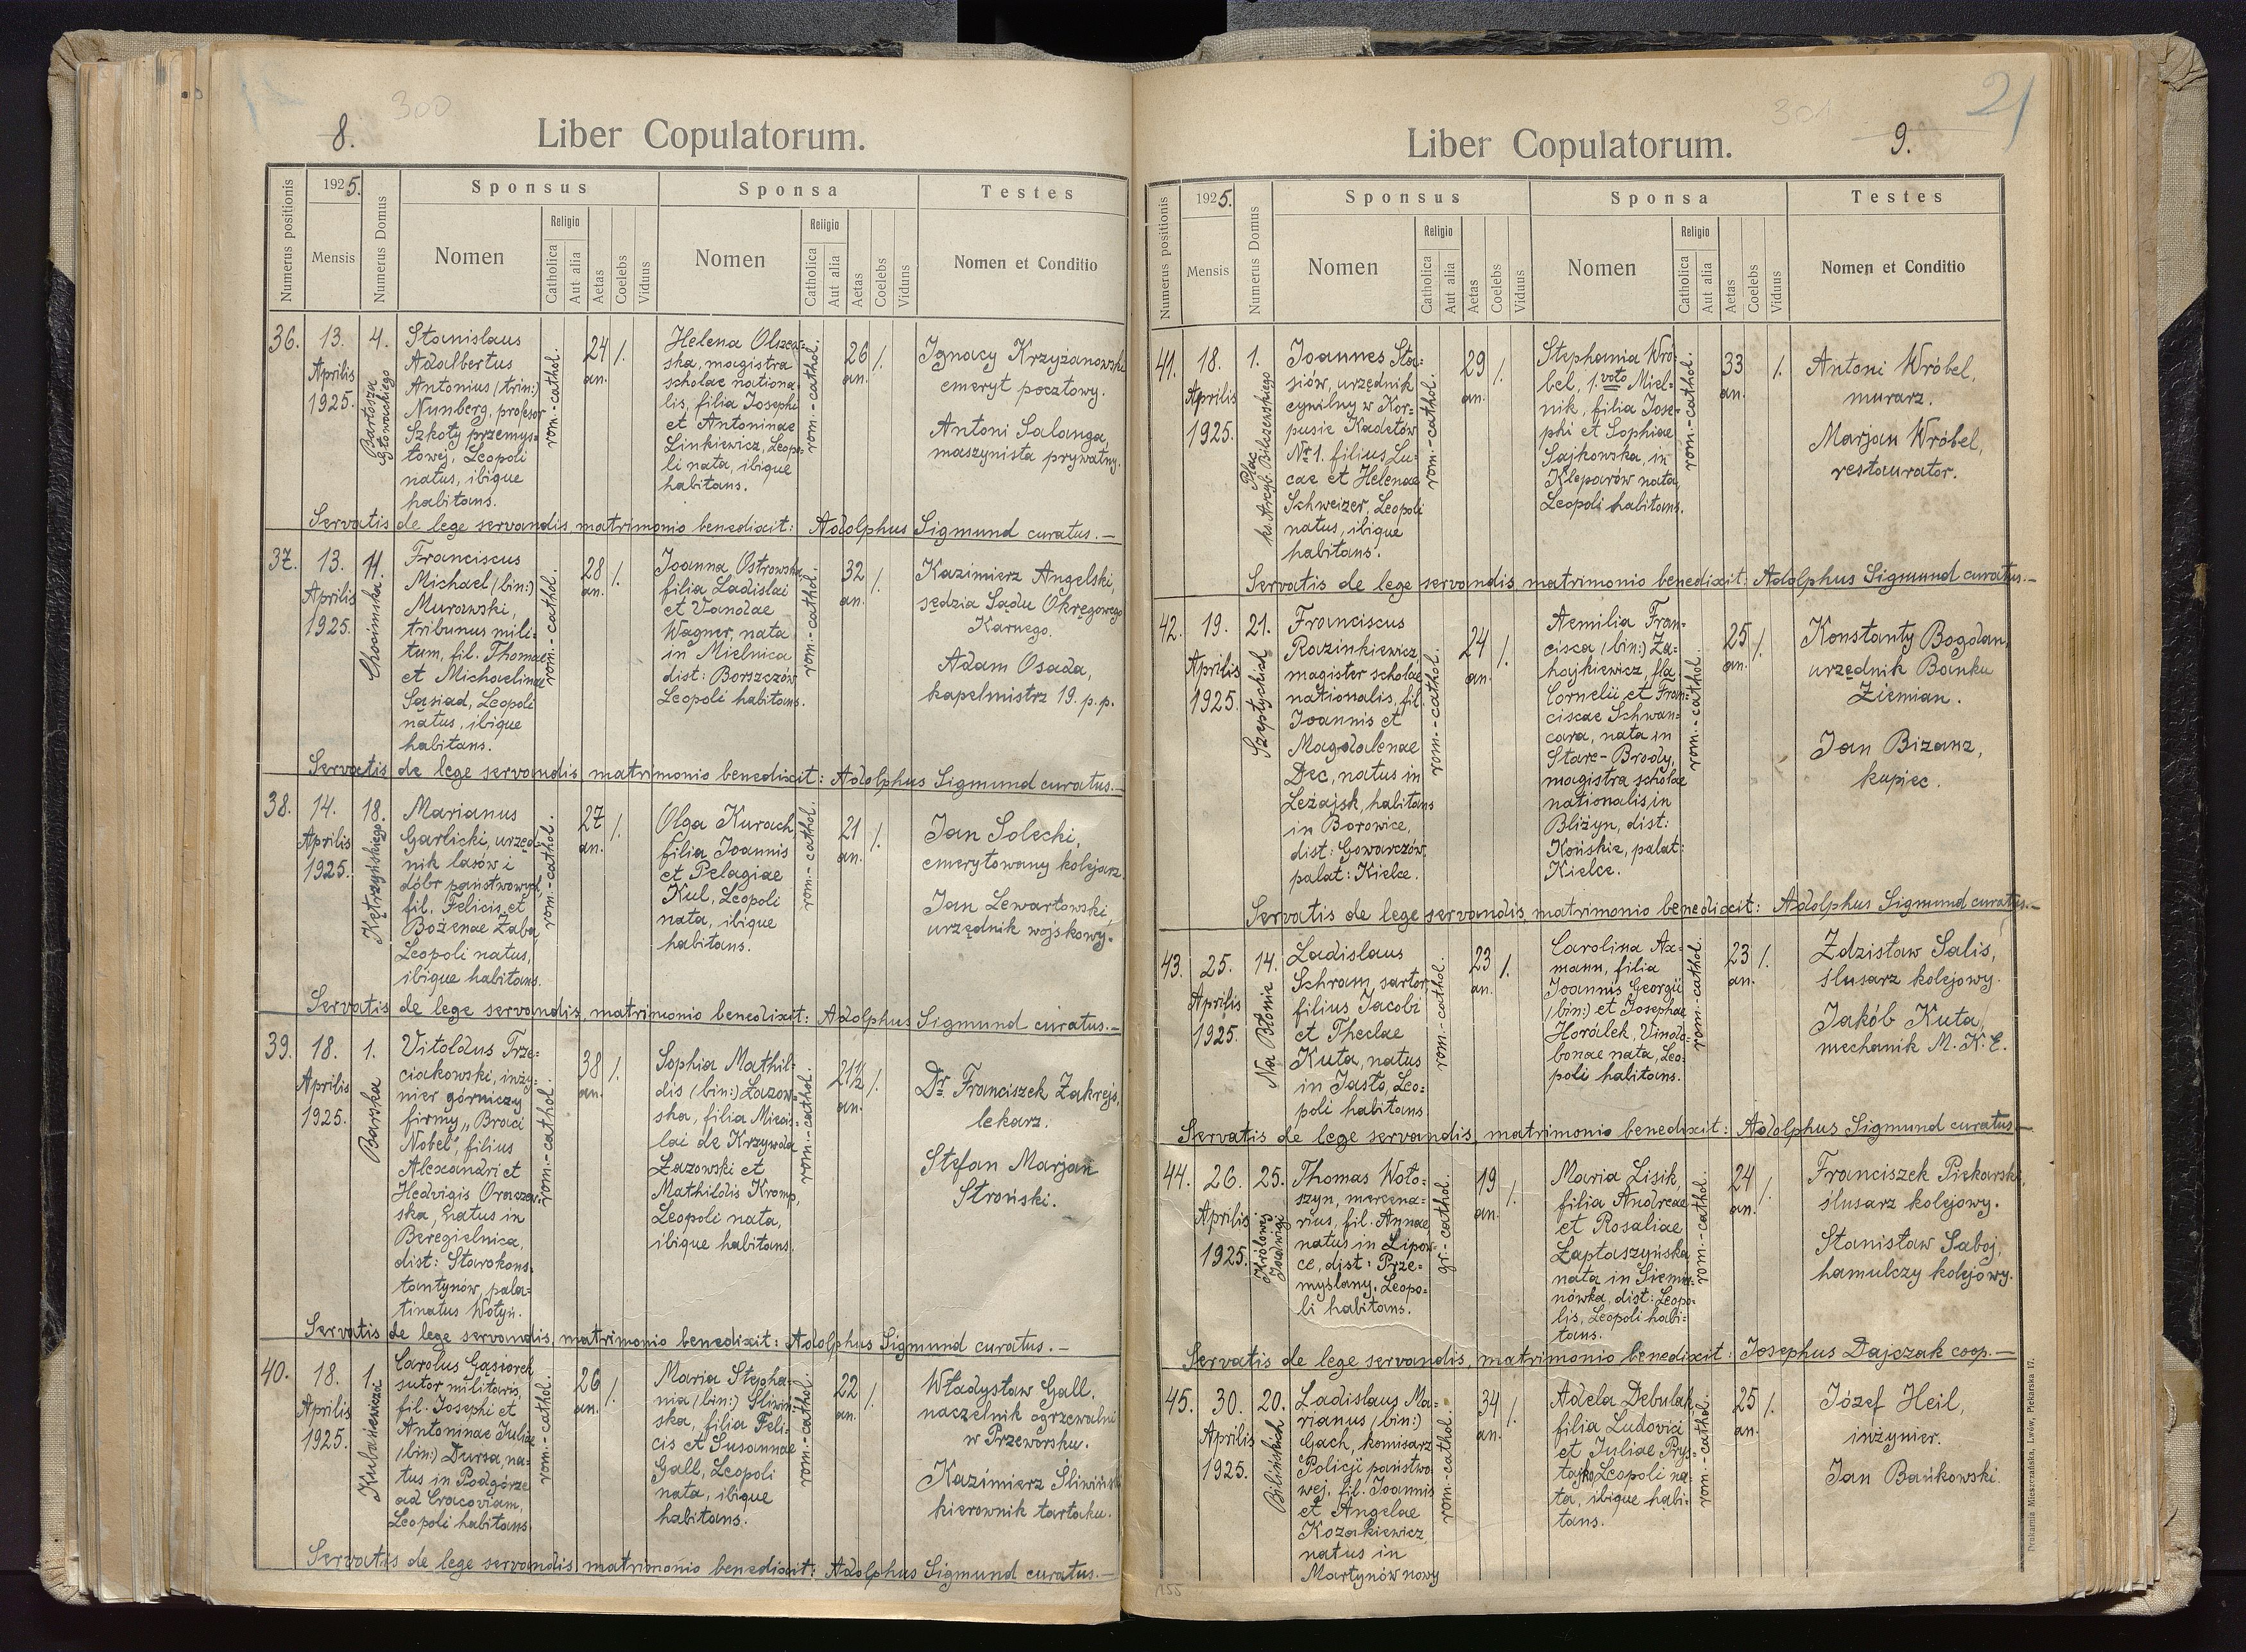 300
8.
Liber Copulatorum.
Numerus positionis
1925.
Mensis
Numerus Domus
Sponsus
Nomen
Religio
Catholica
Aut alia
Aetas
Coelebs
Viduus
Sponsa
Nomen
Religio
Catholica
Aut alia
Aetas
Coelebs
Viduus
Testes
Nomen et Conditio
36.
13.
Aprilis
1925.
4.
Bartosza
Głowackiego
Stanislaus
Adalbertus
Antonius (trin:)
Nunberg, profesor
Szkoły przemys=
łowej, Leopoli
natus, ibique
habitans.
rom.-cathol.
24
an.
1.
Helena Olszew=
ska, magistra
scholae nationa=
lis, filia Josephi
et Antoninae
Linkiewicz, Leopo=
li nata, ibique
habitans.
rom.-cathol.
26
an.
1.
Ignacy Krzyżanowski
emeryt pocztowy.
Antoni Salanga,
maszynista prywatny.
Servatis de lege servandis, matrimonio benedixit: Adolphus Sigmund curatus.—
37.
13.
Aprilis
1925.
11.
Chocimska
Franciscus
Michael (bin:)
Murawski,
tribunus mili=
tum, fil. Thomae
et Michaelinae
Sąsiad, Leopoli
natus, ibique
habitans.
rom.-cathol.
28
an.
1.
Joanna Ostrowska,
filia Ladislai
et Vandae
Wagner, nata
in Mielnica
dist: Borszczów
Leopoli habitans.
rom.-cathol.
32
an.
1.
Kazimierz Angelski,
sędzia Sądu Okręgowego
Karnego.
Adam Osada,
kapelmistrz 19. p.p.
Servatis de lege servandis, matrimonio benedixit: Adolphus Sigmund curatus.—
38.
14.
Aprilis
1925.
18.
Kętrzyńskiego
Marianus
Garlicki, urzęd=
nik lasów i
dóbr państwowych,
fil. Felicis et
Bożenae Żaba,
Leopoli natus,
ibique habitans.
rom.-cathol.
27
an.
1.
Olga Kurach,
filia Joannis
et Pelagiae
Kul, Leopoli
nata, ibique
habitans.
rom.-cathol.
21
an.
1.
Jan Solecki,
emerytowany kolejarz.
Jan Lewartowski,
urzędnik wojskowy.
Servatis de lege servandis, matrimonio benedixit: Adolphus Sigmund curatus.—
39.
18.
Aprilis
1925.
1.
Barska
Vitoldus Trze=
ciakowski, inży=
nier górniczy
firmy „Braci
Nobel", filius
Alexandri et
Hedvigis Oraczew=
ska, natus in
Beregielnica,
dist: Starokons=
tantynów, pala=
tinatus Wołyń.
rom.-cathol.
38
an.
1.
Sophia Mathil=
dis (bin:) Łazow=
ska, filia Nicoi=
lai de Krzywda
Łazowski et
Mathildis Kromp,
Leopoli nata,
ibique habitans.
rom.-cathol.
21½
an.
1.
Dr. Franciszek Zakrejs,
lekarz.
Stefan Marjan
Stroński.
Servatis de lege servandis, matrimonio benedixit: Adolphus Sigmund curatus.—
40.
18.
Aprilis
1925.
1.
Kubasiewicza
Carolus Gąsiorek
sutor militaris,
fil. Josephi et
Antoninae Juliae
(bin:) Dursa, na=
tus in Podgórze
ad Cracoviam,
Leopoli habitans.
rom.-cathol.
26
an.
1.
Maria Stepha=
nia (bin:) Śliwiń=
ska, filia Feli=
cis et Susannae
Gall, Leopoli
nata, ibique
habitans.
rom.-cathol.
22
an.
1.
Władysław Gall,
naczelnik ogrzewalni
w Przeworsku.
Kazimierz Śliwiński
kierownik tartaku.
Servatis de lege servandis, matrimonio benedixit: Adolphus Sigmund curatus.—
301
9.
21
Liber Copulatorum.
Numerus positionis
1925.
Mensis
Numerus Domus
Sponsus
Nomen
Religio
Catholica
Aut alia
Aetas
Coelebs
Viduus
Sponsa
Nomen
Religio
Catholica
Aut alia
Aetas
Coelebs
Viduus
Testes
Nomen et Conditio
41.
18.
Aprilis
1925.
1.
Plac
ks. Arcyb. Bilczewskiego
Joannes Sta=
siów, urzędnik
cywilny w Kor=
pusie Kadetów
Nr 1. filius Lu=
cae et Helenae
Schweizer, Leopoli
natus, ibique
habitans.
rom.-cathol.
29
an.
1.
Stephania Wró=
bel, 1. voto Miel=
nik, filia Jose=
phi et Sophiae
Sajkowska, in
Kleparów nata,
Leopoli habitans.
rom.-cathol.
33
an.
1.
Antoni Wróbel,
murarz.
Marjan Wróbel,
restaurator.
Servatis de lege servandis, matrimonio benedixit: Adolphus Sigmund curatus.—
42.
19.
Aprilis
1925.
21.
Szeptyckich
Franciscus
Razinkiewicz,
magister scholae
nationalis, fil.
Joannis et
Magdalenae
Dec, natus in
Leżajsk, habitans
in Borowice,
dist: Gowarczów,
palat: Kielce.
rom.-cathol.
24
an.
1.
Aemilia Fran=
cisca (bin:) Za=
hajkiewicz, fla
Cornelii et Fran=
ciscae Schwan=
cara, nata in
Stare-Brody,
magistra scholae
nationalis, in
Bliżyn, dist:
Końskie, palat:
Kielce.
rom.-cathol.
25
an.
1.
Konstanty Bogdan,
urzędnik Banku
Ziemian.
Jan Bizanz,
kupiec.
Servatis de lege servandis, matrimonio benedixit: Adolphus Sigmund curatus.—
43.
25.
Aprilis
1925.
14.
Na Błonie
Ladislaus
Schram, sartor
filius Jacobi
et Theclae
Kuta, natus
in Jasło, Leo=
poli habitans
rom.-cathol.
23
an.
1.
Carolina Ax=
mann, filia
Joannis Georgii
(bin:) et Josephae
Horálek, Vindo=
bonae nata, Leo=
poli habitans.
rom.-cathol.
23
an.
1.
Zdzisław Salis,
ślusarz kolejowy.
Jakób Kuta,
mechanik M.K.E.
Servatis de lege servandis, matrimonio benedixit: Adolphus Sigmund curatus—
44.
26.
Aprilis
1925.
25.
Królowej
Jadwigi
Thomas Woło=
szyn, mercena=
rius, fil. Annae
natus in Lipow=
ce, dist: Prze=
myslany, Leopo=
li habitans.
gr.-cathol.
19
an.
1.
Maria Lisik,
filia Andreae
et Rosaliae
Łaptaszyńska
nata in Siemia=
nówka, dist: Leopo=
lis, Leopoli habi=
tans.
rom.-cathol.
24
an.
1.
Franciszek Piekarski,
ślusarz kolejowy.
Stanisław Saboj,
hamulczy kolejowy.
Servatis de lege servandis, matrimonio benedixit: Josephus Dajczak coop.—
45.
30.
Aprilis
1925.
20.
Bilińskich
Ladislaus Ma=
rianus (bin:)
Gach, komisarz
Policji państwo=
wej, fil. Joannis
et Angelae
Kozakiewicz,
natus in
Martynów nowy
rom.-cathol.
34
an.
1.
Adela Debulak,
filia Ludovici
et Juliae Prys=
tajko, Leopoli na=
ta, ibique habi=
tans.
rom.-cathol.
25
an.
1.
Józef Heil,
inżynier.
Jan Bańkowski.
Drukarnia Mieszczańska, Lwów, Piekarska 17.
155